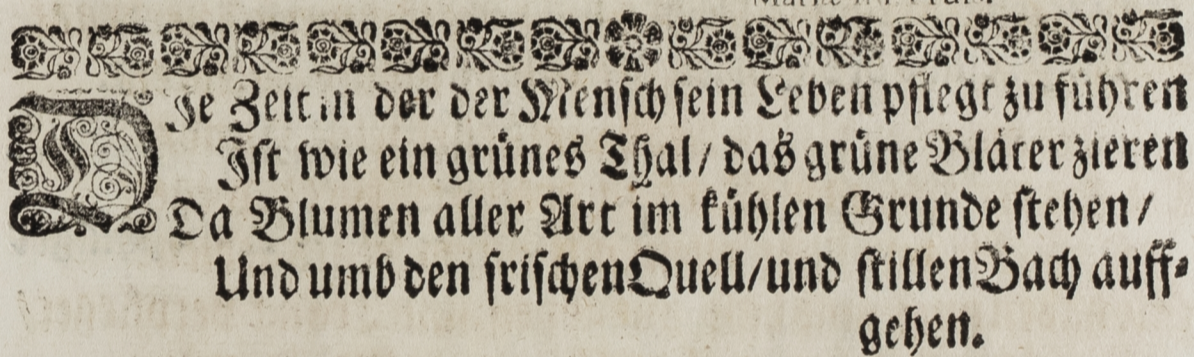 DJe Zeit in der der Mensch sein Leben pflegt zu führen
Jst wie ein grünes Thal/ das grüne Bläter zieren
Da Blumen aller Art im kühlen Grunde stehen/
Und umb den frischen Quell/ und stillen Bach auff-
gehen.